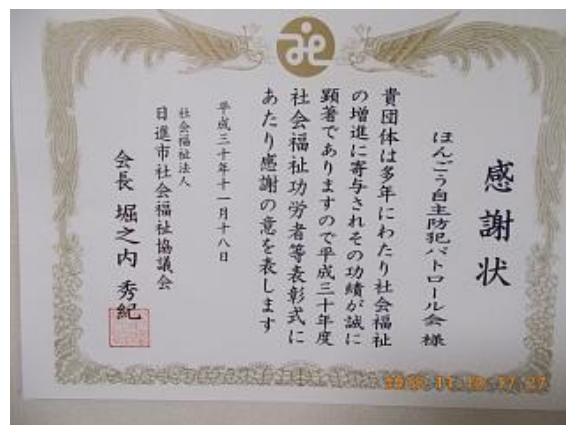 感謝状
ほんごう自主防犯パトロール会 様
貴団体は多年にわたり社会福祉
の増進に寄与されその功績が誠に
顕著でありますので平成三十年度
社会福祉功労者等表彰式に
あたり感謝の意を表します
平成三十年十一月十八日
社会福祉法人
日進市社会福祉協議会
会長 堀之内 秀紀